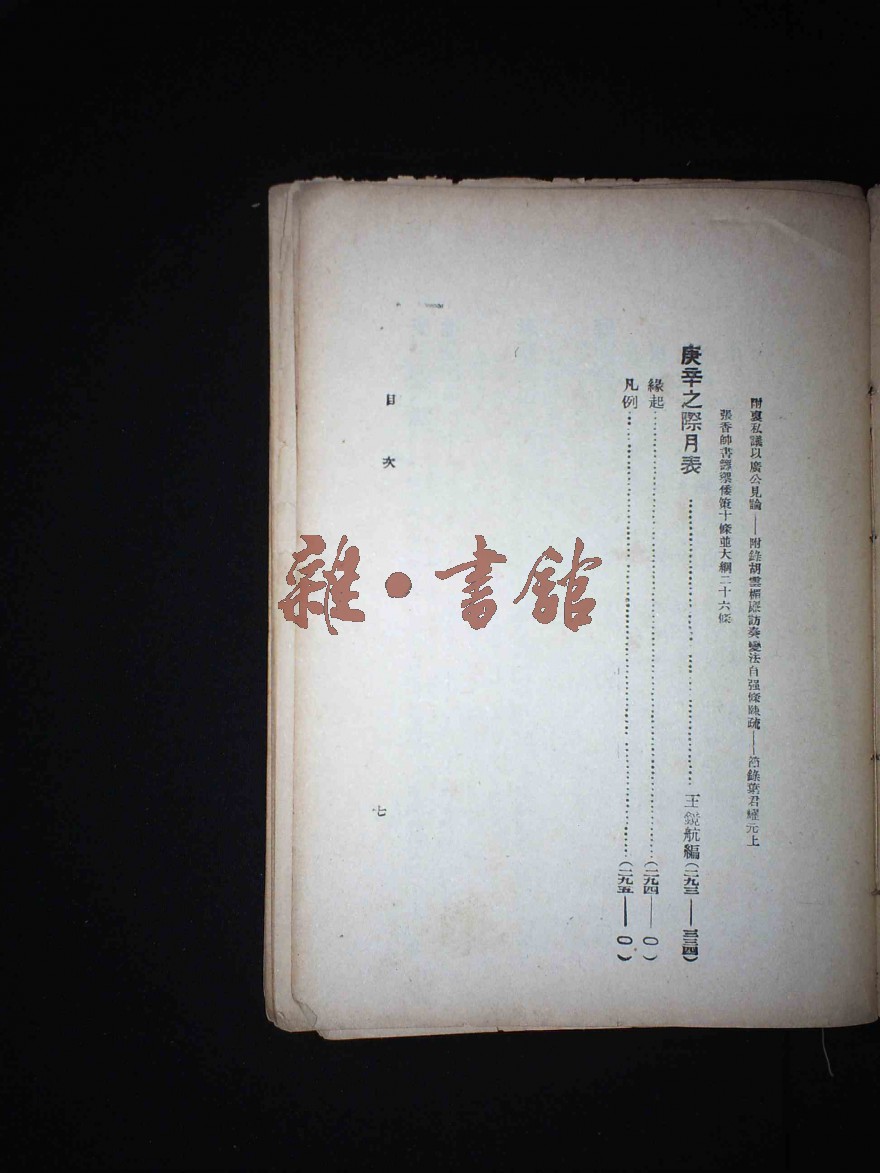 附裏私議以廣公見論——附錄胡雲楣廉訪奏變法自强條陳疏——節錄葉君耀元上
張香帥書譯禦倭策十條並大綱二十六條
庚辛之際月表……王鏡航編(二九三——三三四)
緣起……(二九四——〇)
凡例……(二九五——〇)
目次
七
雜·書館